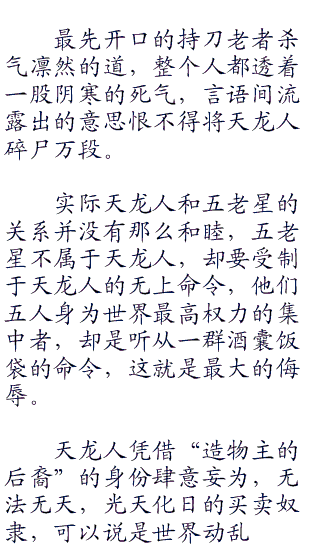 最先开口的持刀老者杀
气凛然的道，整个人都透着
一股阴寒的死气，言语间流
露出的意思恨不得将天龙人
碎尸万段。
实际天龙人和五老星的
关系并没有那么和睦，五老
星不属于天龙人，却要受制
于天龙人的无上命令，他们
五人身为世界最高权力的集
中者，却是听从一群酒囊饭
袋的命令，这就是最大的侮
辱。
天龙人凭借“造物主的
后裔”的身份肆意妄为，无
法无天，光天化日的买卖奴
隶，可以说是世界动乱